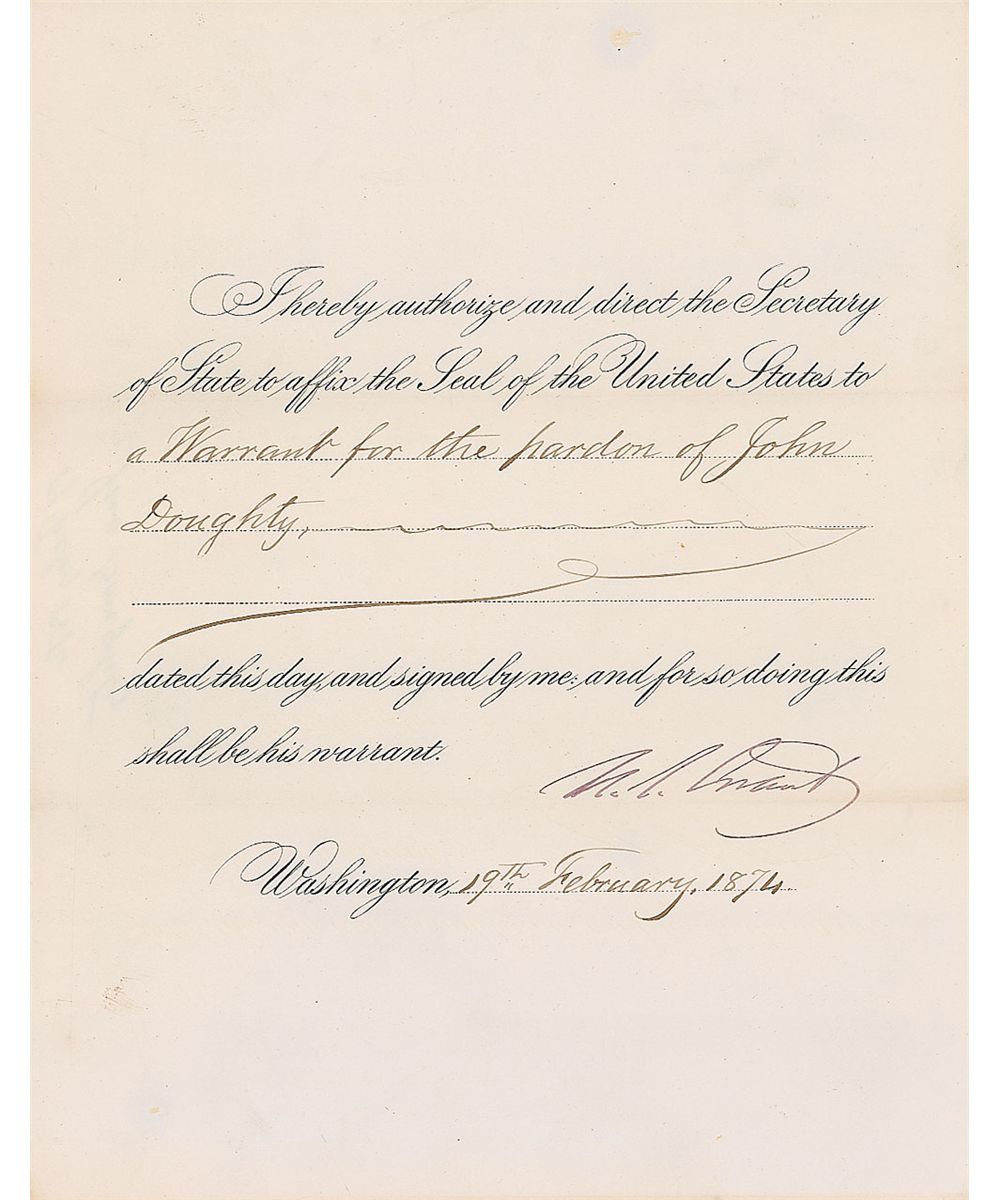 I hereby authorize and direct the Secretary
of State to affix the Seal of the United States to
a Warrant for the pardon of John
Doughty,
dated this day, and signed by me: and for so doing this
shall be his warrant.
U. S. Grant
Washington, 19th February, 1874.